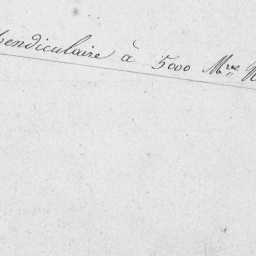 pendiculaire à 5000 Mres